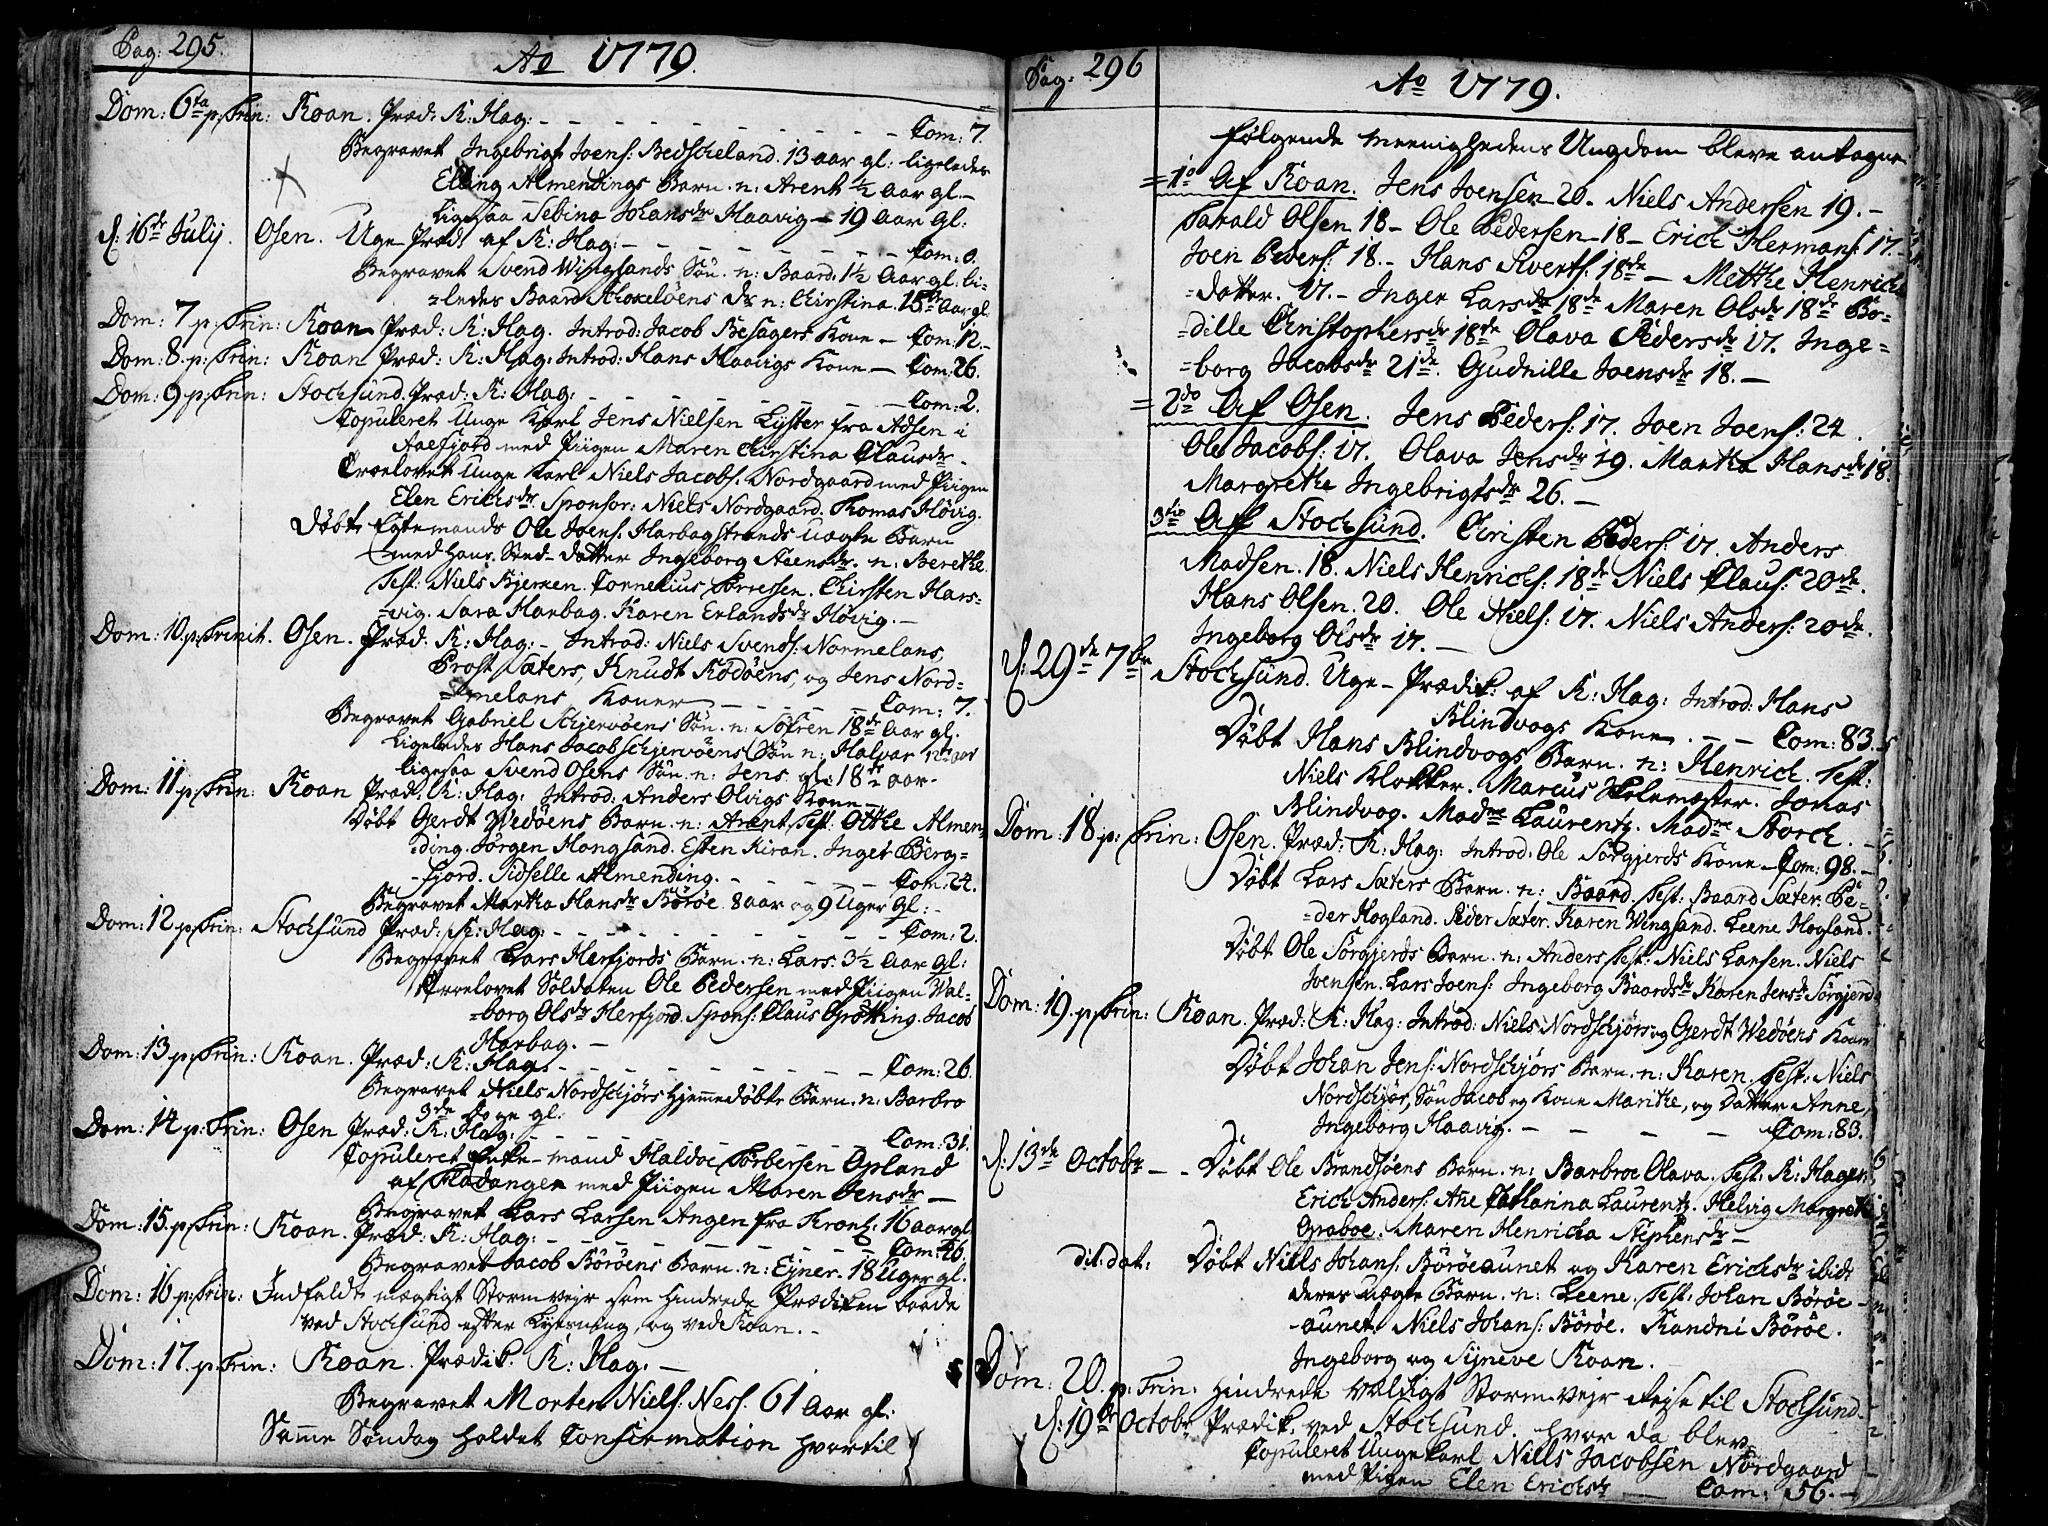 Pag: 295.
Ao 1779.
Dom: 6ta p: Trin: Roan. Præd: K: Hag: - - - - Com: 7.
Begravet Ingebrigt Joens: Bedscheland. 13 aar gl: ligeledes
Elling Almendings Barn. n: Arent ½ aar gl. -
Ligesaa Sebina Johansdr Haavig - 19 Aar gl:
d: 16de Julij. Osen. Uge-Præd: af K: Hag: - - - - Com: 0.
Begravet Svend Winglands Søn. n: Baard. 1½ Aar gl: li-
=ledes Baard dr n: Christina. 15 Aar gl.
Dom: 7 p: Trin: Roan Præd: K: Hag. Introd: Jacob Besagers Kone - Com: 12. -
Dom: 8. p: Trin: Roan Præd: K: Hag: Introd: Hans Haavigs Kone - Com: 26.
Dom: 9 p: Trin: Stochsund. Præd: K: Hag: - - - - Com: 2.
Copuleret Unge Karl Jens Nielsen Lyster fra Adsen i
Aaefjord med Piigen Maren Christina Clausdr -
Troelovet Unge Karl Niels Jacobs: Nordgaard med Piigen
Elen Erichsdr Sponsor: Niels Nordgaard. Thomas Høvig.
Døbt Egtemands Ole Joens: Harbagstrands uægte Barn
med hans Sted-datter Ingeborg dr. n: Berethe.
Test: Niels Bjernen. Cornelius Torressen. Christen Hars-
=vig. Sara Harbag. Karen Erlandsdr Høvig. -
Dom: 10. p: Trinit. Osen. Præd: K: Hag: - Introd: Niels Svends: Normelans,
Sæters, Knudt Rødøens, og Jens Nord-
=melans Koner - - - - Com: 7.
Begravet Gabriel Schjervøens Søn. n: Søfren 18de Aar gl.
Ligeledes Hans Jacob Schjervøens Søn n: Halvar 12te aar
Ligesaa Svend Osens Søn. n: Jens gl: 18½ aar.
Dom: 11 p: Trin: Roan Præd: K: Hag: Introd: Anders Olvigs Kone -
Døbt Gerdt Wedøens Barn. n: Arent Test: Otthe Almen-
ding. Jørgen Hongsand. Esten Kiran. Inger Berg-
- fjord. Sidselle Almending. - - - - Com: 24.
Begravet Martha Hansdr Børøe. 8 aar og 9 Uger gl: -
Dom: 12 p: Trin: Stochsund Præd: K: Hag: - - - - Com: 2.
Begravet Lars Herfjords Barn. n: Lars. 3½ Aar gl:
Troelovet Soldaten Ole Pedersen med Piigen Wal-
=borg Olsdr Herfjord. Spons: Claus Grøtting. Jacob
Harbag. -
Dom: 13 p: Trin: Roan. Præd: K: Hag: - - - - Com: 26.
Begravet Niels Nordschjørs hjemmedøbte Barn. n: Barbro
3de Dage gl:
Dom: 14 p: Trin: Osen Præd: K: Hag: - - - - Com: 31.
Copuleret Enke-mand Haldoe Torbersen Opland
af Fladangen med Piigen Maren Jensdr -
Begravet Lars Larsen Angen fra 16 aar gl.
Dom: 15. p: Trin: Roan. Præd: K: Hag: - - - - Com: 46.
Begravet Jacob Børøens Barn. n: Ejner. 18 Uger gl.
Dom: 16 p: Trin: Indfaldt mægtigt Stormvejr som hindrede Prædiken baade
ved Stochsund efter Lysning, og ved Roan. -
Dom: 17. p: Trin: Roan. Prædik. K: Hag: -
Begravet Morten Niels: Ness. 61 Aar gl:
Samme Søndag holdet Confirmation hvortil
Pag: 296
Ao 1779.
følgende meenighedens Ungdom bleve antagne
= 1o Af Roan. Jens Joensen 20. Niels Andersen 19. -
Tarald Olsen 18 - Ole Pedersen - 18 - Erich Hermans: 17. -
Joen Peders: 18. - Hans Siverts: 18de - Metthe Henrichs
=datter. 17. - Inger Larsdr 18de Maren Olsdr 18de Bo-
=dille Christophersdr 18de Olava Pedersdr 17. Inge=
=borg Jacobsdr 21de. Gudnille Joensdr 18. -
= 2do Af Osen. Jens Peders: 17. Joen Joens: 24.
Ole Jacobs: 17. Olava Jensdr 19. Martha Hansdr 18.
Margrethe Ingebrigtsdr 26. -
3tio Aff Stochsund. Christen Peders: 17. Anders
Madsen. 18. Niels Henrichs: 18de Niels Claus: 20de.
Hans Olsen. 20. Ole Niels: 17. Niels Anders: 20de.
Ingeborg Olsdr 17. -
d: 29de 7br Stochsund. Uge-Prædik: af K: Hag: Introd: Hans
Blindvogs Kone. - - Com: 83.
Døbt Hans Blindvogs Barn. n: Henrich. Test:
Niels Klokker. Marcus Skolemester. Jonas
Blindvog. Madme Laurentz. Madme Storch. -
Dom: 18. p: Trin: Osen. Præd: K: Hag: Introd: Ole Sørgjerds Kone - Com: 98. -
Døbt Lars Sæters Barn. n: Baard. Test: Baard Sæter. Pe-
=der Hogland. Peder Sæter. Karen Wengsand. Leene Hogland.
Døbt Ole Sørgjerds Barn. n: Anders. Test: Niels Larsen. Niels
Joensen. Lars Joens: Ingeborg Baardsdr Karen Jensdr Sørgjerd
Dom: 19. p: Trin: Roan. Præd: K: Hag: Introd: Niels Nordschjørs og Gerdt Wedøens Koner
Døbt Johan Jens: Nordschjørs Barn. n: Karen. Test: Niels
Nordschjør, Søn Jacob og Kone Marithe, og Datter Anne,
Ingeborg Haavig. - - - - Com: 83.
d: 13de Octobr - - Døbt Ole Brandsøens Barn. n: Barbroe Olava. Test: K: Hagen,
Erich Anders: Ane Catharina Laurentz. Helvig Margrethe
Graboe. Maren Henricka Stephensdr -
dit: dat: Døbt Niels Johans: Børøeaunet og Karen Erichsdr ibid:
deres uægte Barn. n: Leene. Test: Johan Børøe -
-aunet. Niels Johans: Børøe. Randni Børøe.
Ingeborg og Synneve Roan.
Dom: 20. p: Trin: hindrede vældigt Stormvejr Rejse til Stochsund.
d: 19de Octobr Prædik. ved Stochsund. hvor da blev
Copuleret Unge Karl Niels Jacobsen Nordgaard
med Pigen Elen Erichsdr - Com: 56. -